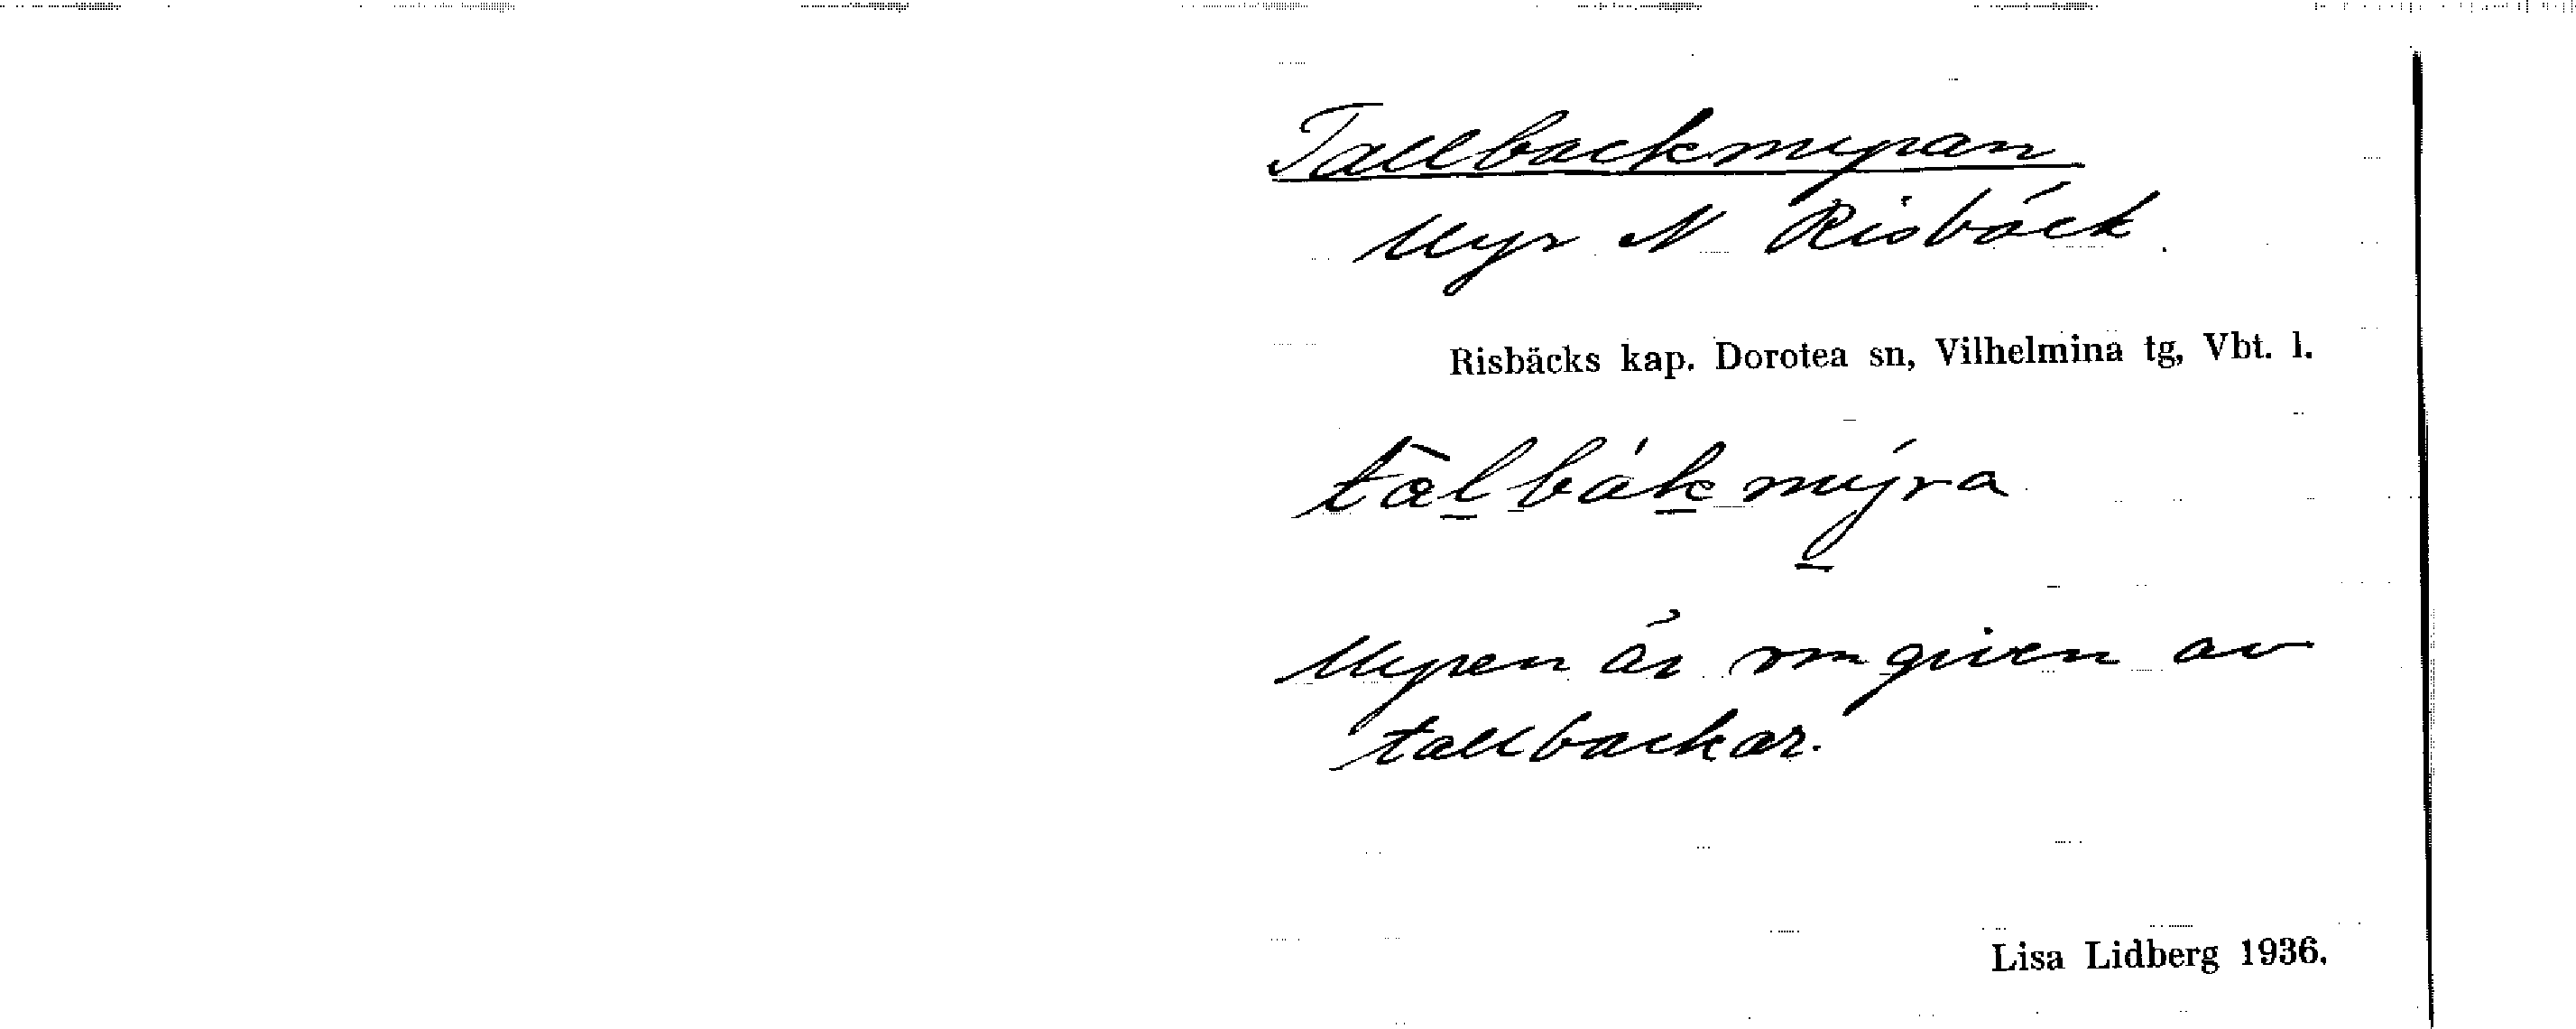 Tallbackmyran
Myr N Risbäck.
Risbäcks kap. Dorotea sn, Vilhelmina tg, Vbt. l.
ta̍l̲bák̲mýra
Myren är omgiven av
tallbackar.
Lisa Lidberg 1936.